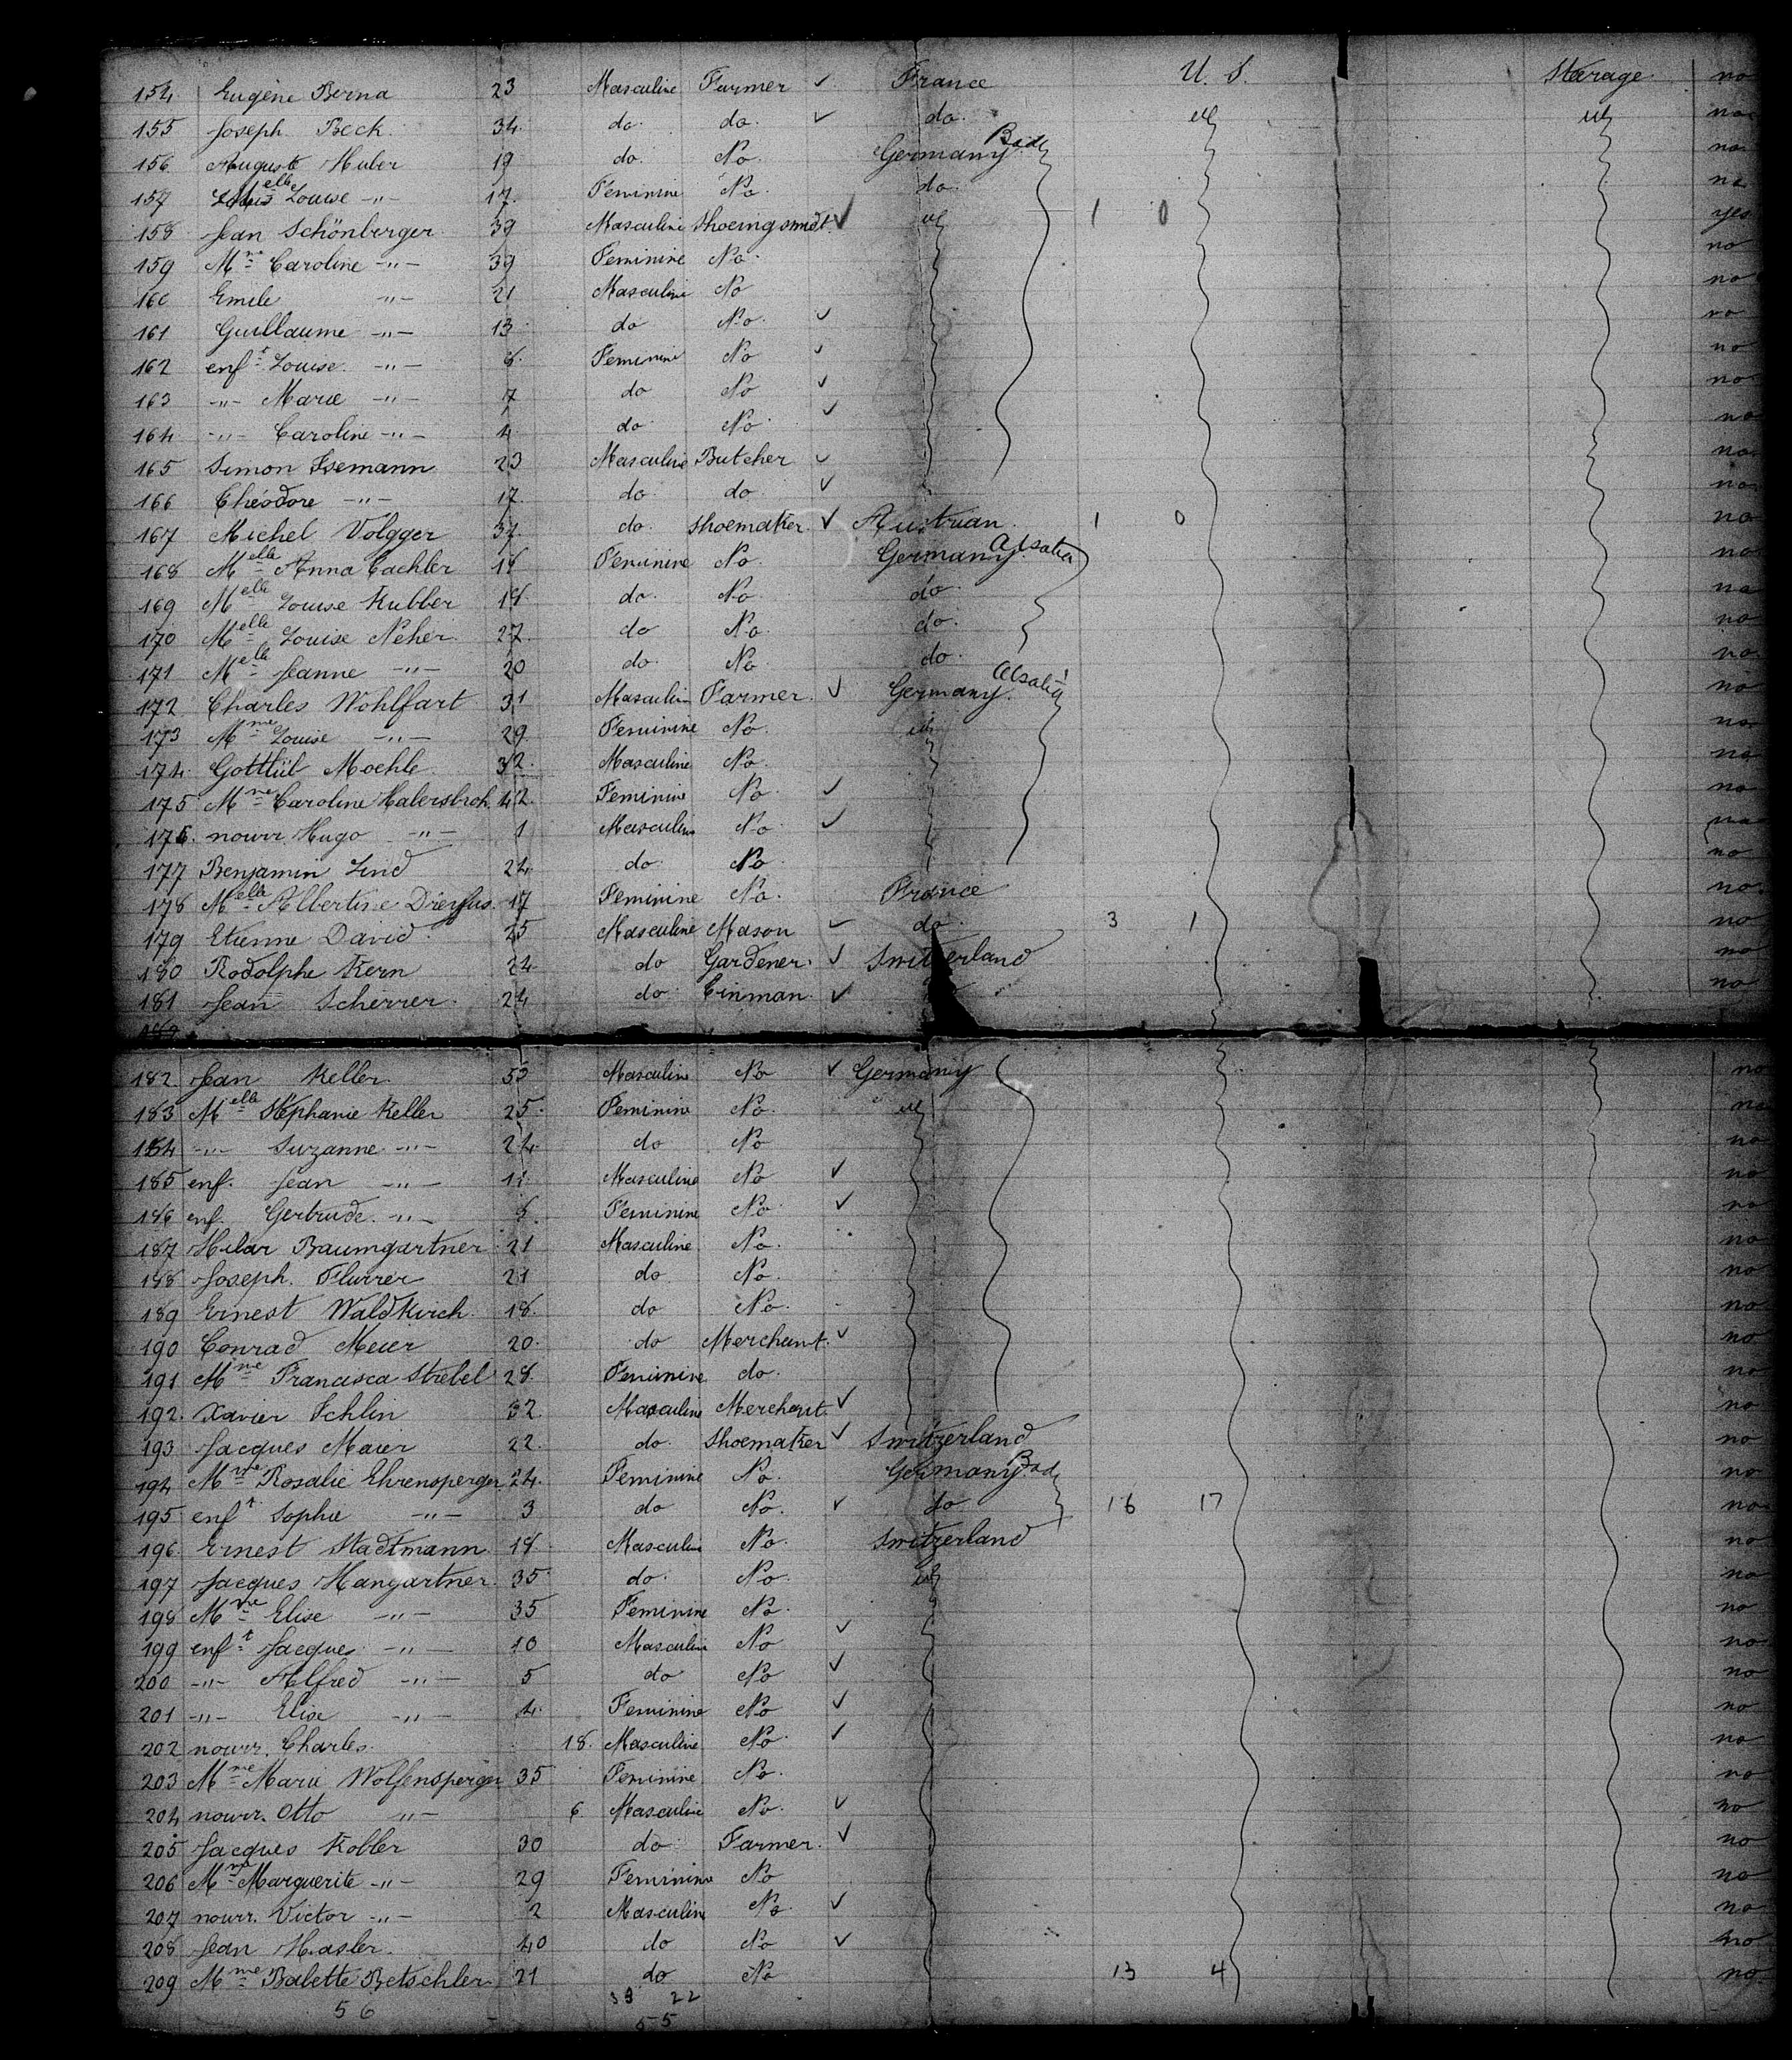 154 Eugène Berna 23 Masculine Farmer ✓ France U. S. Steerage no
155 Joseph Beck 34 do. do. ✓ do. no
156 Auguste Huber 19 do. No. Germany Bad no
157 Melle Louise -"- 17 Feminine No. do. no
158 Jean Schönberger 39 Masculine Shoeingsmidt ✓ 1 0 yes
159 Mme Caroline -"- 39 Feminine No. no
160 Emile -"- 21 Masculine No no
161 Guillaume -"- 13 do No. ✓ no
162 enft Louise -"- 8 Feminine No ✓ no
163 -"- Marie -"- 7 do No ✓ no
164 -"- Caroline -"- 4 do No. ✓ no
165 Simon Isemann 23 Masculine Butcher ✓ no
166 Théodore -"- 17 do. do ✓ no
167 Michel Volgger 37 do. Shoemaker ✓ Austrian 1 0 no
168 Melle Anna Cachler 18 Feminine No. Germany Alsatia no
169 Melle Louise Kubber 18 do. No. do. no
170 Melle Louise Neher 27 do No. do. no
171 Melle Jeanne -"- 20 do. No. do. no
172 Charles Wohlfart 31 Masculin Farmer ✓ Germany Alsatia no
173 Mme Louise -"- 29 Feminine No. no
174 Gottlieb Moehle 32 Masculine No. no
175 Mme Caroline Halersbroh 42 Feminine No. ✓ no
176 nourr. Hugo -"- 1 Masculine No ✓ no
177 Benjamin Lind 24 do No no
178 Melle Albertine Dreyfus 17 Feminine No. France no
179 Etienne David 25 Masculine Mason ✓ do. 3 1 no
180 Rodolphe Kern 24 do Gardener ✓ Switzerland no
181 Jean Scherrer 24 do Tinman ✓ no
182 Jean Keller 53 Masculine No ✓ Germany no
183 Melle Stéphanie Keller 25 Feminine No. no
184 -"- Suzanne -"- 24 do No no
185 enf. Jean -"- 11 Masculine No ✓ no
186 enf. Gertrude -"- 8 Feminine No. ✓ no
187 Hilar Baumgartner 21 Masculine No. no
188 Joseph Flurrer 21 do. No. no
189 Ernest Waldkirch 18 do No. no
190 Conrad Meier 20 do Merchant ✓ no
191 Mme Francisca Strebel 28 Feminine do. no
192 Xavier Schlin 32 Masculine Merchant ✓ no
193 Jacques Maier 22 do. Shoemaker ✓ Switzerland no
194 Mme Rosalie Ehrensperger 24 Feminine No. Germany Bad no
195 enft Sophie -"- 3 do No. ✓ do 16 17 no
196 Ernest Stadtmann 18 Masculine No. Switzerland no
197 Jacques Hangartner 35 do. No. no
198 Mme Elise -"- 35 Feminine No. no
199 enft Jacques -"- 10 Masculine No ✓ no
200 -"- Alfred -"- 5 do No ✓ no
201 -"- Elise -"- 4 Feminine No ✓ no
202 nourr. Charles 18 Masculine No. ✓ no
203 Mme Marie Wolfensperger 35 Feminine No. no
204 nourr. Otto -"- 6 Masculine No. ✓ no
205 Jacques Kobler 30 do Farmer ✓ no
206 Mme Marguerite -"- 29 Feminine No no
207 nourr. Victor -"- 2 Masculine No. ✓ no
208 Jean Hasler 40 do No ✓ no
209 Mme Babette Betschler 21 do No 13 4 no
56 33 22
55